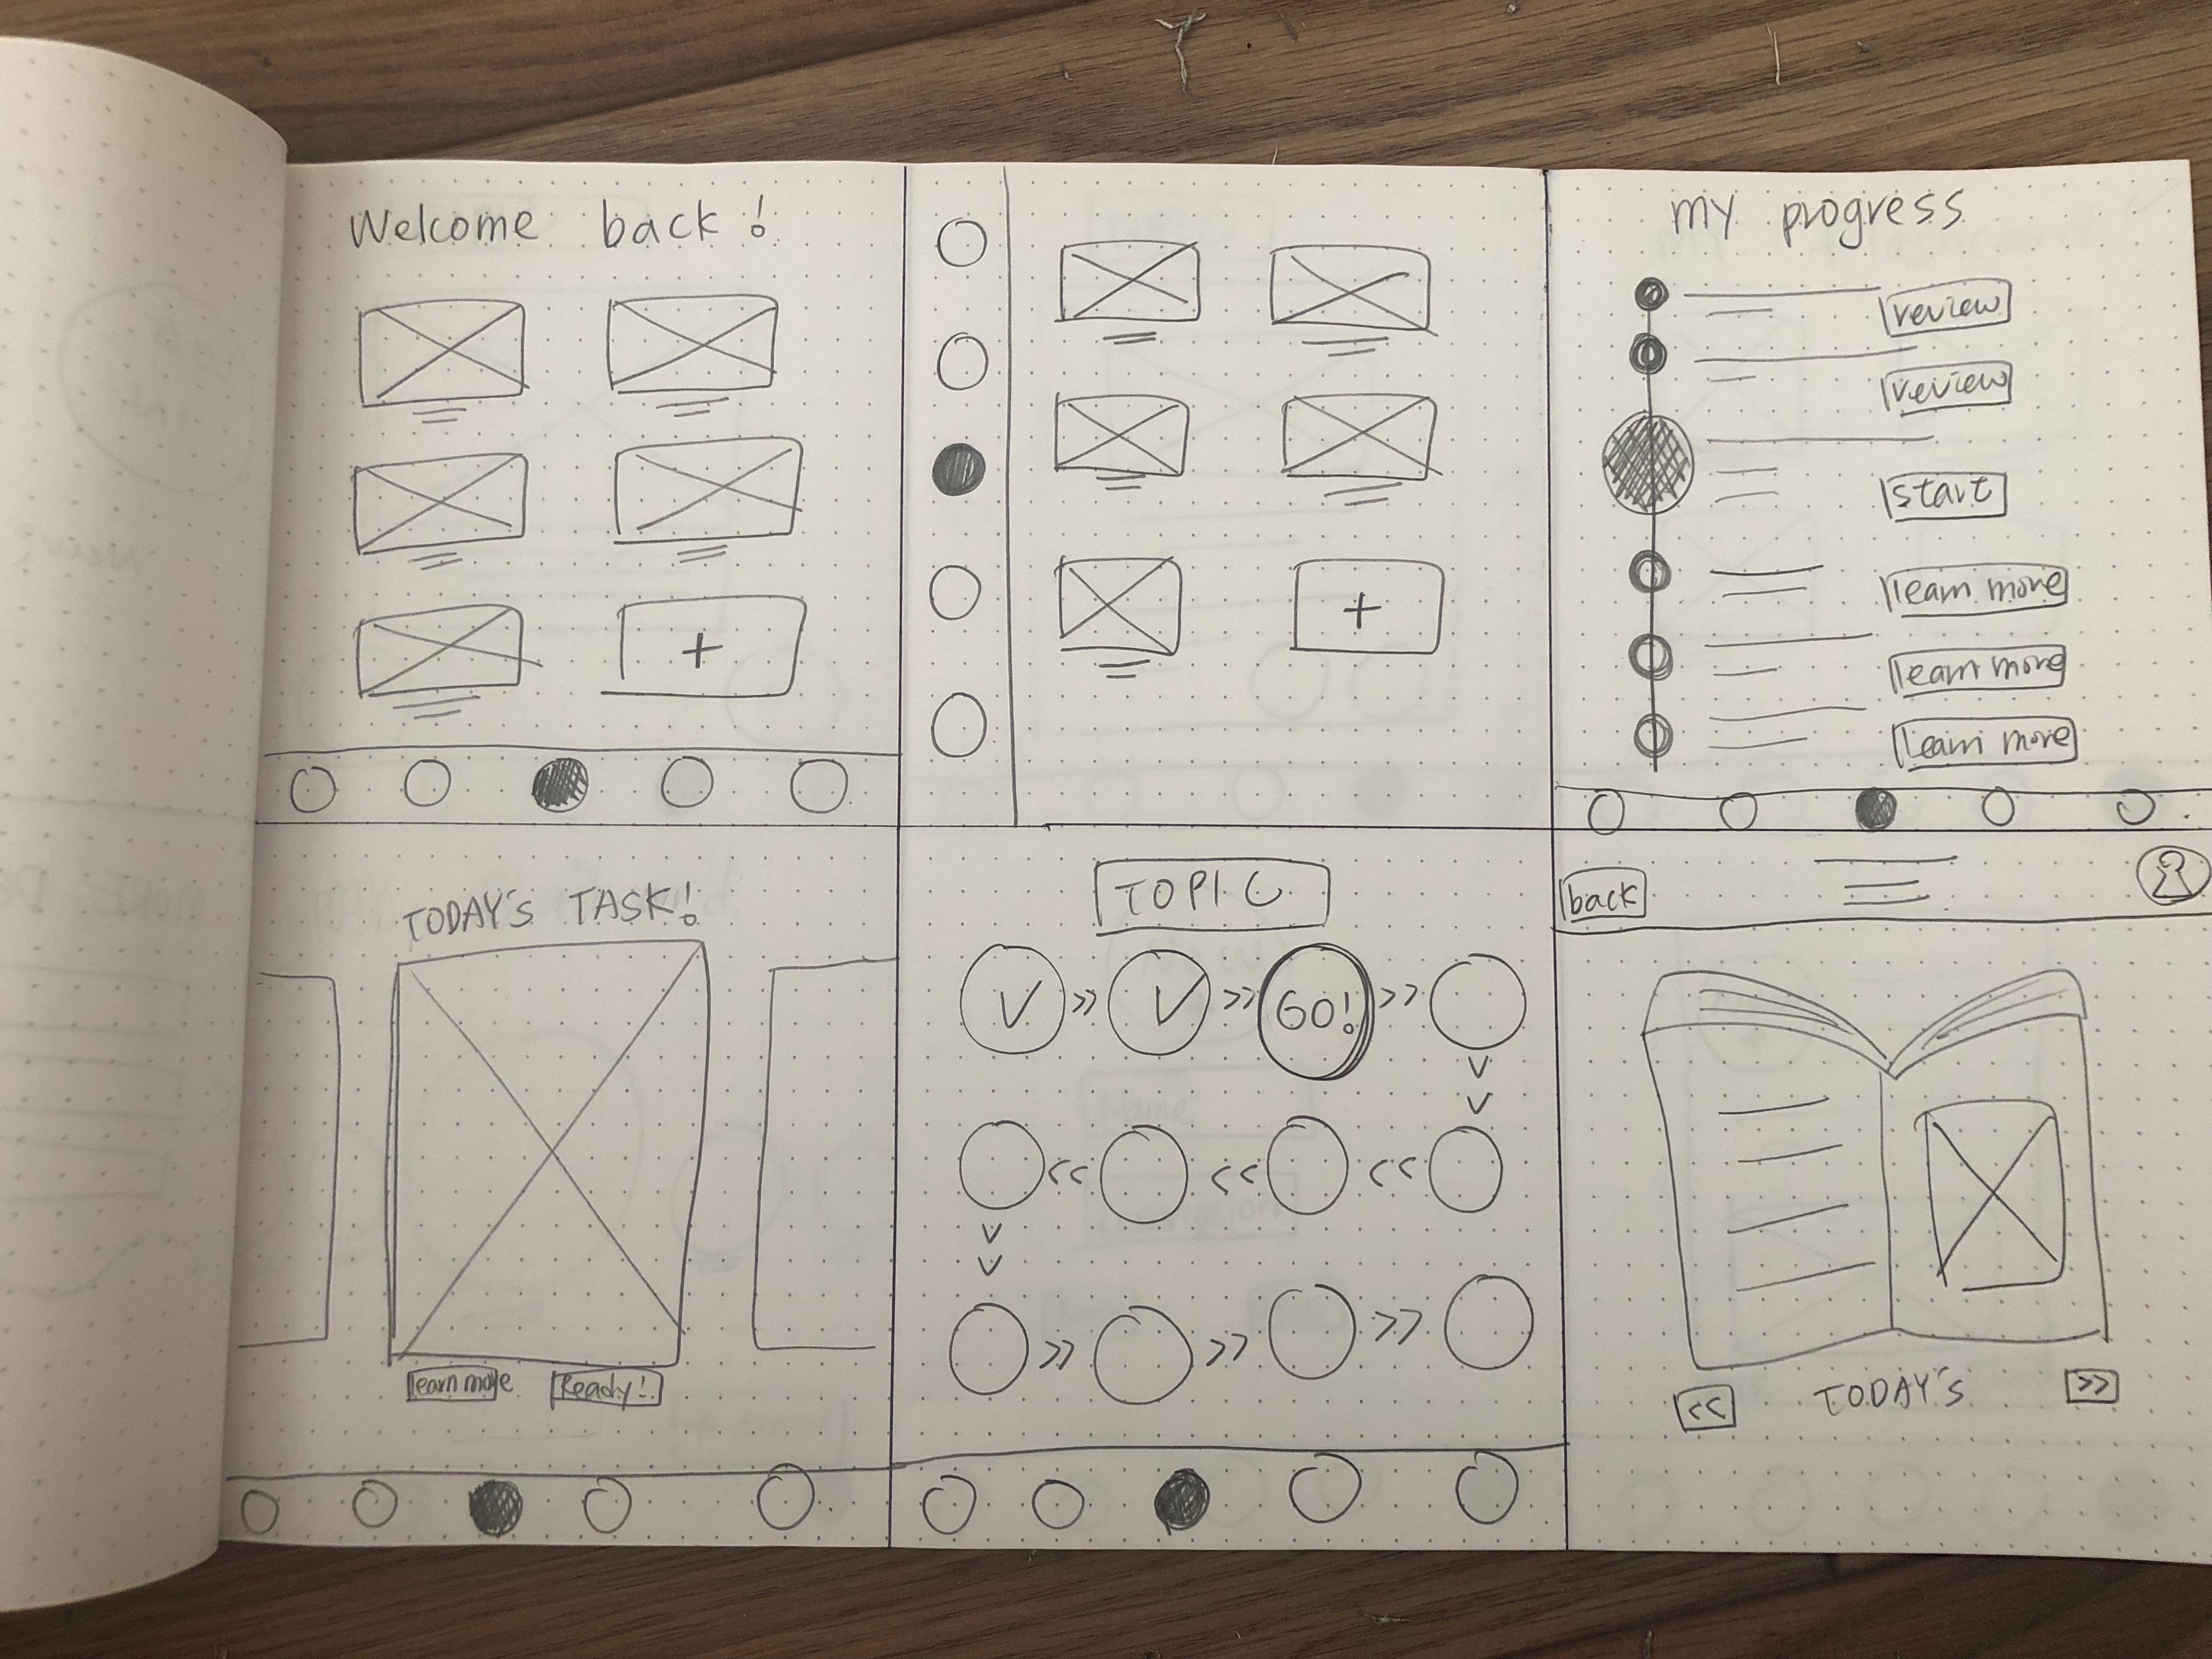 Welcome back!
+
+
my progress
review
review
start
learn more
learn more
learn more
TODAY'S TASK!
learn more
Ready!
TOPIC
V >> V >> GO! >>
V
V
<< << <<
V
V
>> >> >>
back
<< TODAY'S >>